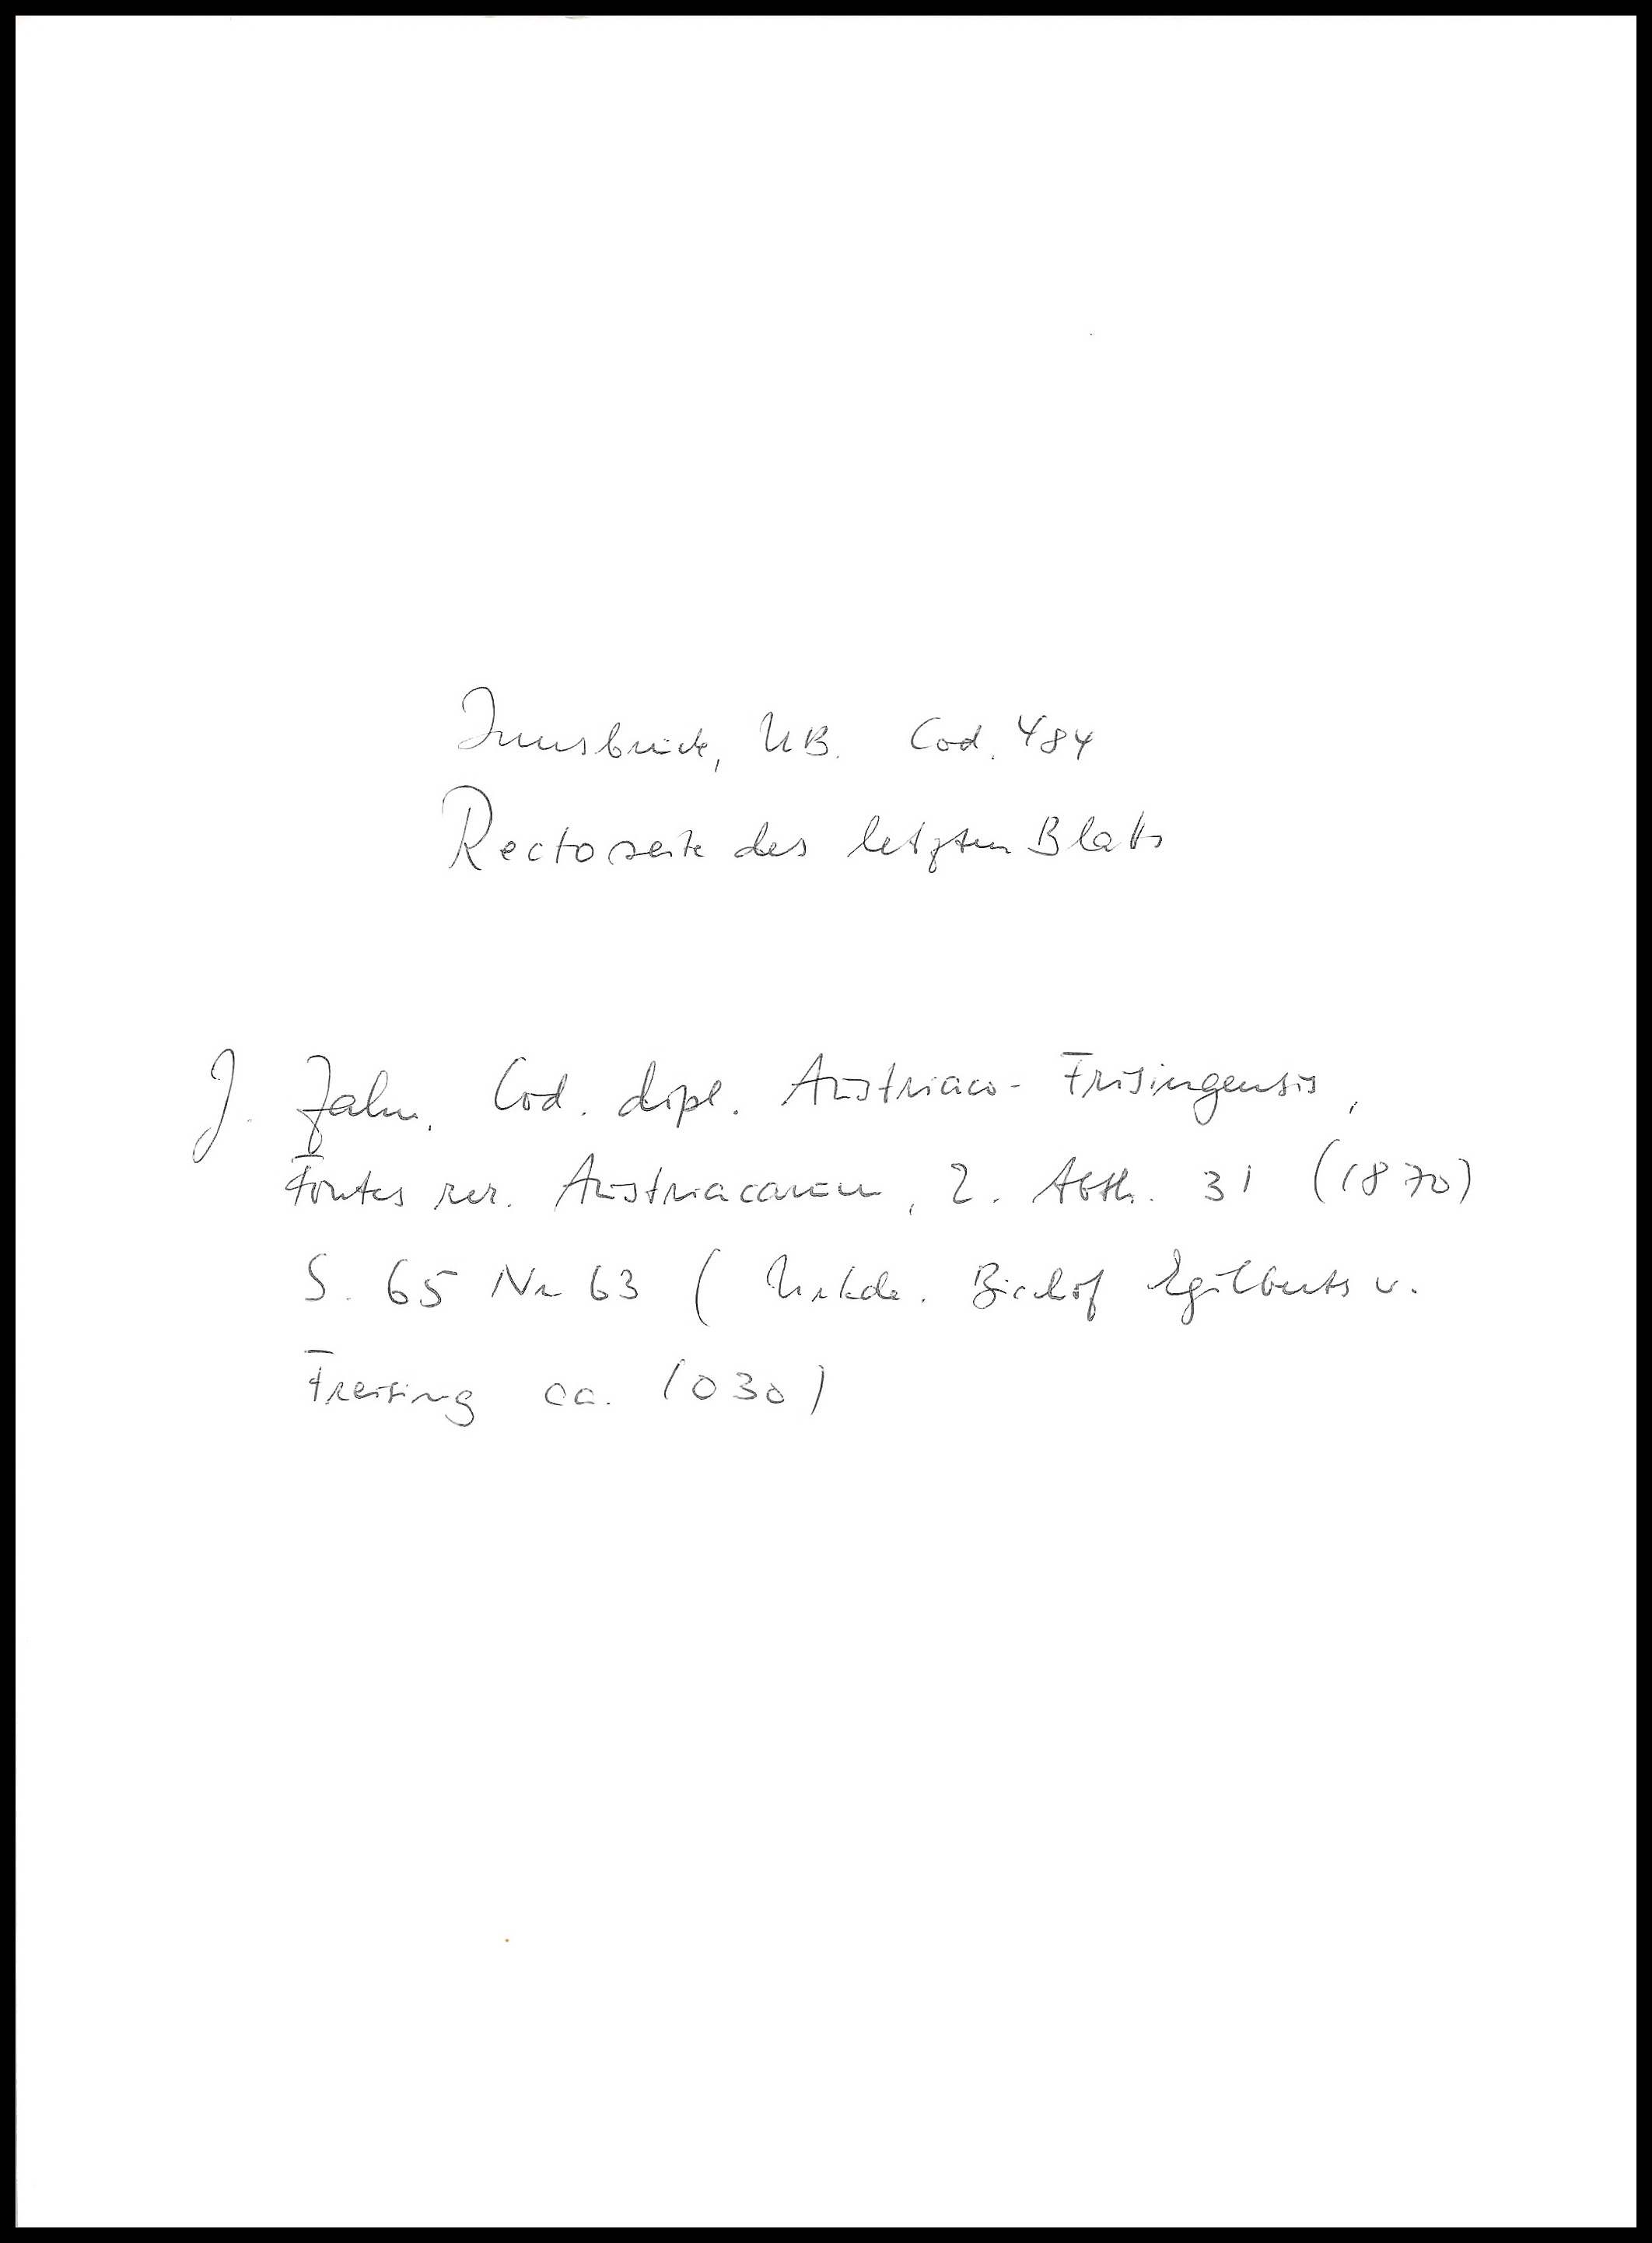 Innsbruck, UB. Cod. 484
Rectoseite des letzten Blatts
J. Zahn, Cod. dipl. Austriaco-Frisingensis,
Fontes rer. Austriacarum, 2. Abth. 31 (1870)
S. 65 Nr 63 (Urkde. Bischof Egilberts v.
Freising ca. 1030)